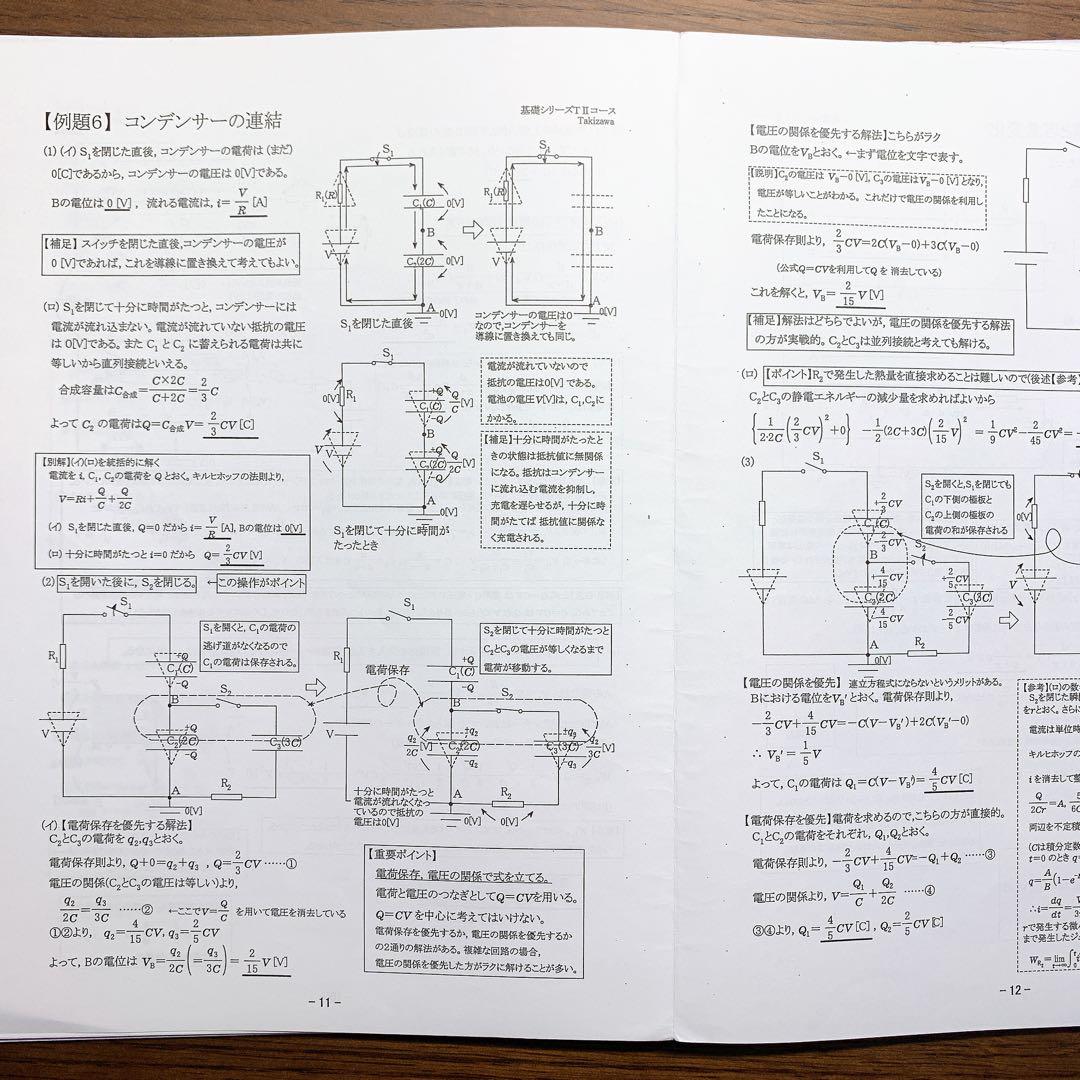 基礎シリーズTⅡコース
Takizawa
【例題6】 コンデンサーの連結
(1) (イ) S₁を閉じた直後, コンデンサーの電荷は (まだ)
0[C]であるから, コンデンサーの電圧は 0[V]である。
Bの電位は 0 [V] , 流れる電流は, i=V/R [A]
【補足】 スイッチを閉じた直後,コンデンサーの電圧が
0 [V]であれば, これを導線に置き換えて考えてもよい。
S₁
R₁(R)
C₁(C)
0[V]
B
C₂(2C)
0[V]
V
A
0[V]
S₁を閉じた直後
S₁
R₁(R)
B
V
A
0[V]
コンデンサーの電圧は0
なので,コンデンサーを
導線に置き換えても同じ。
(ロ) S₁を閉じて十分に時間がたつと, コンデンサーには
電流が流れ込まない。電流が流れていない抵抗の電圧
は 0[V]である。また C₁ と C₂ に蓄えられる電荷は共に
等しいから直列接続といえる。
合成容量はC合成=C×2C/C+2C=2/3 C
よって C₂ の電荷はQ=C合成V=2/3 CV [C]
S₁
0[V]
R₁
+Q
C₁(C)
-Q
Q/C [V]
B
+Q
C₂(2C)
-Q
Q/2C [V]
V
A
0[V]
S₁を閉じて十分に時間が
たったとき
電流が流れていないので
抵抗の電圧は0[V] である。
電池の電圧V[V]は, C₁,C₂に
かかる。
【補足】十分に時間がたったと
きの状態は抵抗値に無関係
になる。抵抗はコンデンサー
に流れ込む電流を抑制し,
充電を遅らせるが, 十分に時
間がたてば 抵抗値に関係な
く充電される。
【別解】(イ)(ロ)を統括的に解く
電流を i, C₁, C₂の電荷を Qとおく。キルヒホッフの法則より,
V=Ri+Q/C+Q/2C
(イ) S₁を閉じた直後, Q=0 だから i=V/R [A], Bの電位は 0[V]
(ロ) 十分に時間がたつと i=0 だから Q=2/3 CV [V]
(2) S₁を開いた後に, S₂を閉じる。 ←この操作がポイント
S₁
S₁を開くと, C₁の電荷の
逃げ道がなくなるので
C₁の電荷は保存される。
R₁
+Q
C₁(C)
-Q
B
S₂
V
+Q
C₂(2C)
-Q
C₃(3C)
A
R₂
0[V]
電荷保存
S₁
S₂を閉じて十分に時間がたつと
C₂とC₃の電圧が等しくなるまで
電荷が移動する。
R₁
+Q
C₁(C)
-Q
B
S₂
V
q₂/2C [V]
+q₂
C₂(2C)
-q₂
+q₃
C₃(3C)
-q₃
q₃/3C [V]
十分に時間がたつと
電流が流れなくなっ
ているので抵抗の
電圧は0[V]
A
R₂
0[V]
0[V]
(イ) 【電荷保存を優先する解法】
C₂とC₃の電荷を q₂,q₃とおく。
電荷保存則より, Q+0=q₂+q₃ , Q=2/3 CV ……①
電圧の関係(C₂とC₃の電圧は等しい)より,
q₂/2C=q₃/3C ……② ←ここでV=Q/C を用いて電圧を消去している
①②より, q₂=4/15 CV, q₃=2/5 CV
よって, Bの電位は V_B=q₂/2C(=q₃/3C)=2/15 V [V]
【重要ポイント】
電荷保存, 電圧の関係で式を立てる。
電荷と電圧のつなぎとしてQ=CVを用いる。
Q=CV を中心に考えてはいけない。
電荷保存を優先するか, 電圧の関係を優先するか
の2通りの解法がある。複雑な回路の場合,
電圧の関係を優先した方がラクに解けることが多い。
- 11 -
【電圧の関係を優先する解法】こちらがラク
Bの電位をV_Bとおく。←まず電位を文字で表す。
【説明】C₂の電圧は V_B-0 [V], C₃の電圧はV_B-0 [V]となり,
電圧が等しいことがわかる。これだけで電圧の関係を利用し
たことになる。
電荷保存則より, 2/3 CV=2C(V_B-0)+3C(V_B-0)
(公式Q=CVを利用してQ を 消去している)
これを解くと, V_B=2/15 V [V]
【補足】解法はどちらでよいが, 電圧の関係を優先する解法
の方が実戦的。C₂とC₃は並列接続と考えても解ける。
(ロ) 【ポイント】R₂で発生した熱量を直接求めることは難しいので(後述【参考】
C₂とC₃の静電エネルギーの減少量を求めればよいから
{1/2·2C(2/3 CV)²+0} -1/2(2C+3C)(2/15 V)² =1/9 CV²-2/45 CV²=
(3)
S₁
S₂を開くと,S₁を閉じても
C₁の下側の極板と
C₂の上側の極板の
電荷の和が保存される
+2/3 CV
C₁(C)
-2/3 CV
B
S₂
+4/15 CV
C₂(2C)
-4/15 CV
+2/5 CV
C₃(3C)
-2/5 CV
A
R₂
0[V]
0[V]
V
【電圧の関係を優先】 連立方程式にならないというメリットがある。
Bにおける電位をV_B′とおく。電荷保存則より,
-2/3 CV+4/15 CV=-C(V-V_B′)+2C(V_B′-0)
∴ V_B′=1/5 V
よって, C₁の電荷は Q₁=C(V-V_B)=4/5 CV [C]
【電荷保存を優先】電荷を求めるので,こちらの方が直接的。
C₁とC₂の電荷をそれぞれ, Q₁,Q₂とおく。
電荷保存則より, -2/3 CV+4/15 CV=-Q₁+Q₂ ……③
電圧の関係より, V=Q₁/C+Q₂/2C ……④
③④より, Q₁=4/5 CV [C] , Q₂=2/5 CV [C]
【参考】(ロ)の数
S₂を閉じた瞬間
をrとおく。さらに
電流は単位時
キルヒホッフの
i を消去して整
Q/2Cr=A,
両辺を不定積
(Cは積分定数
t=0 のとき q
q=A/B(1-e
∴i=dq/dt=
rで発生する微
まで発生したジュ
W_R₂=lim t→∞ ∫
- 12 -